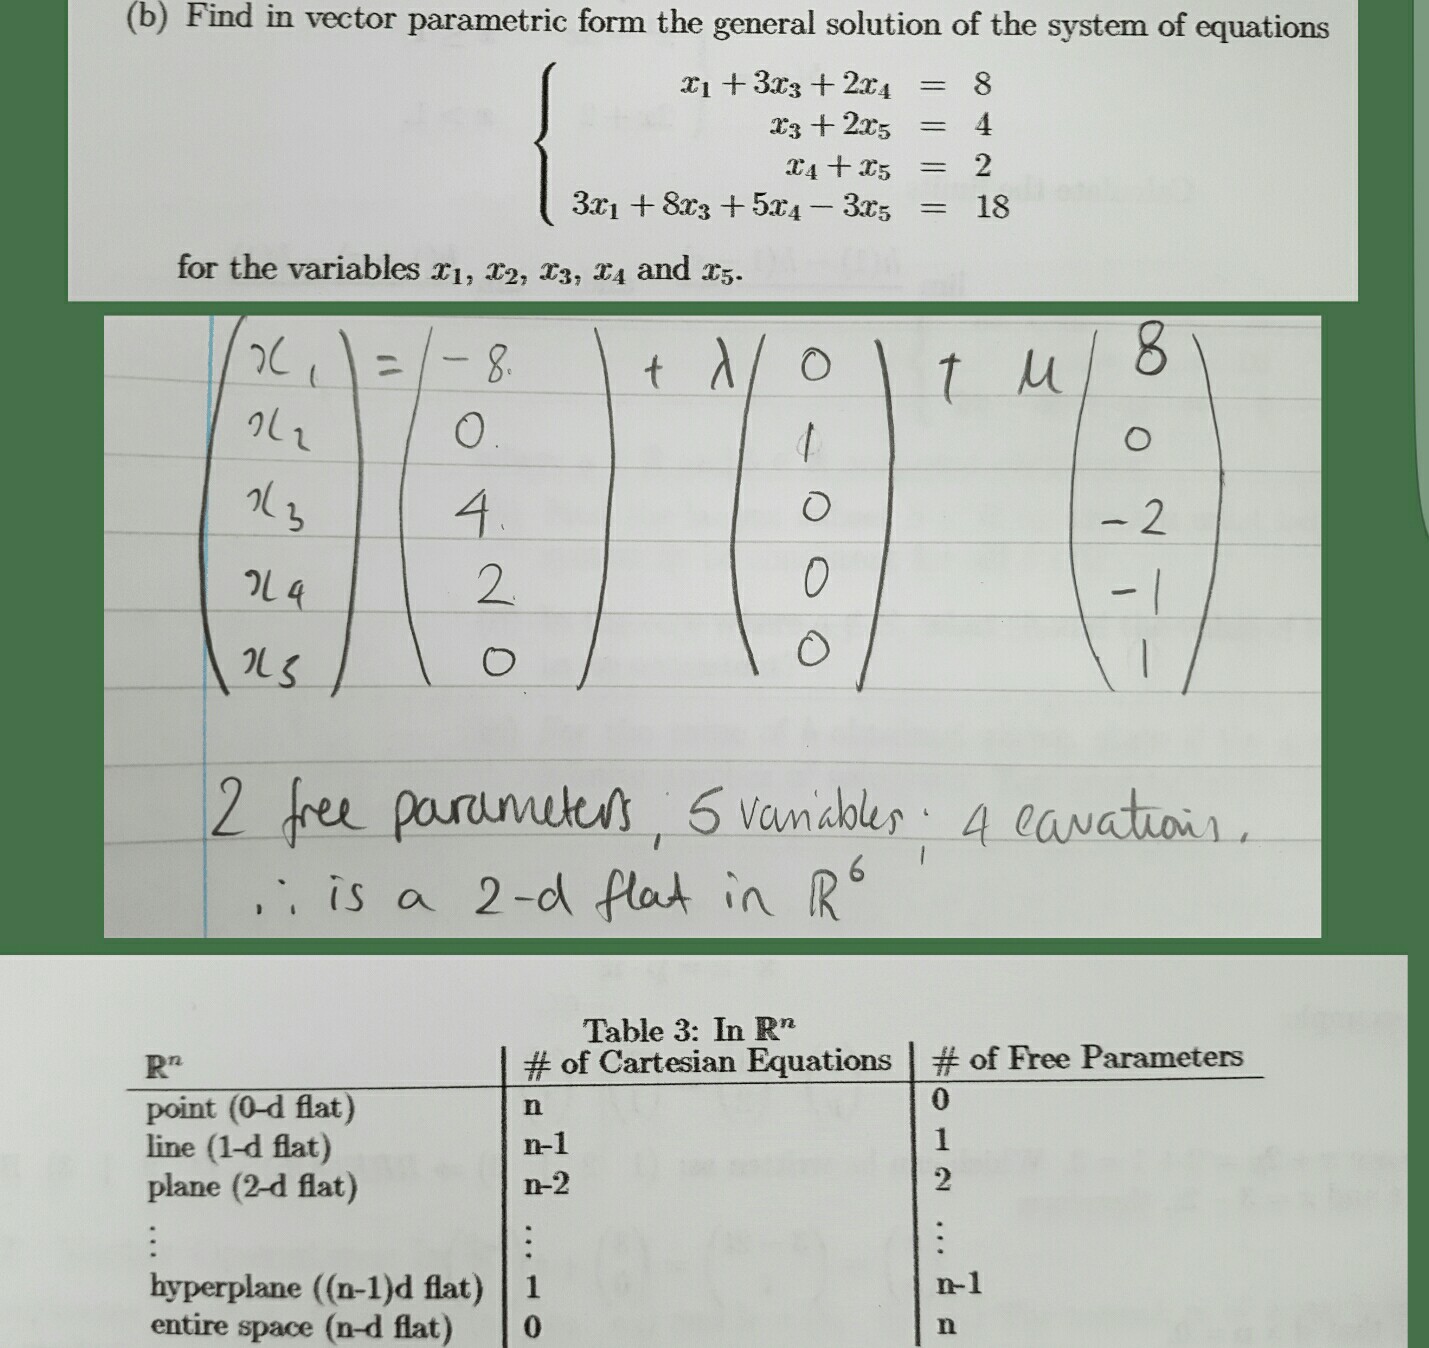 (b) Find in vector parametric form the general solution of the system of equations
x₁ + 3x₃ + 2x₄ = 8
x₃ + 2x₅ = 4
x₄ + x₅ = 2
3x₁ + 8x₃ + 5x₄ − 3x₅ = 18
for the variables x₁, x₂, x₃, x₄ and x₅.
x₁ = -8. + λ 0 + μ 8
x₂ 0. 1 0
x₃ 4. 0 -2
x₄ 2. 0 -1
x₅ 0 0 1
2 free parameters, 5 variables, 4 equations.
∴ is a 2-d flat in ℝ⁶
Table 3: In ℝⁿ
ℝⁿ # of Cartesian Equations # of Free Parameters
point (0-d flat) n 0
line (1-d flat) n-1 1
plane (2-d flat) n-2 2
⋮ ⋮ ⋮
hyperplane ((n-1)d flat) 1 n-1
entire space (n-d flat) 0 n